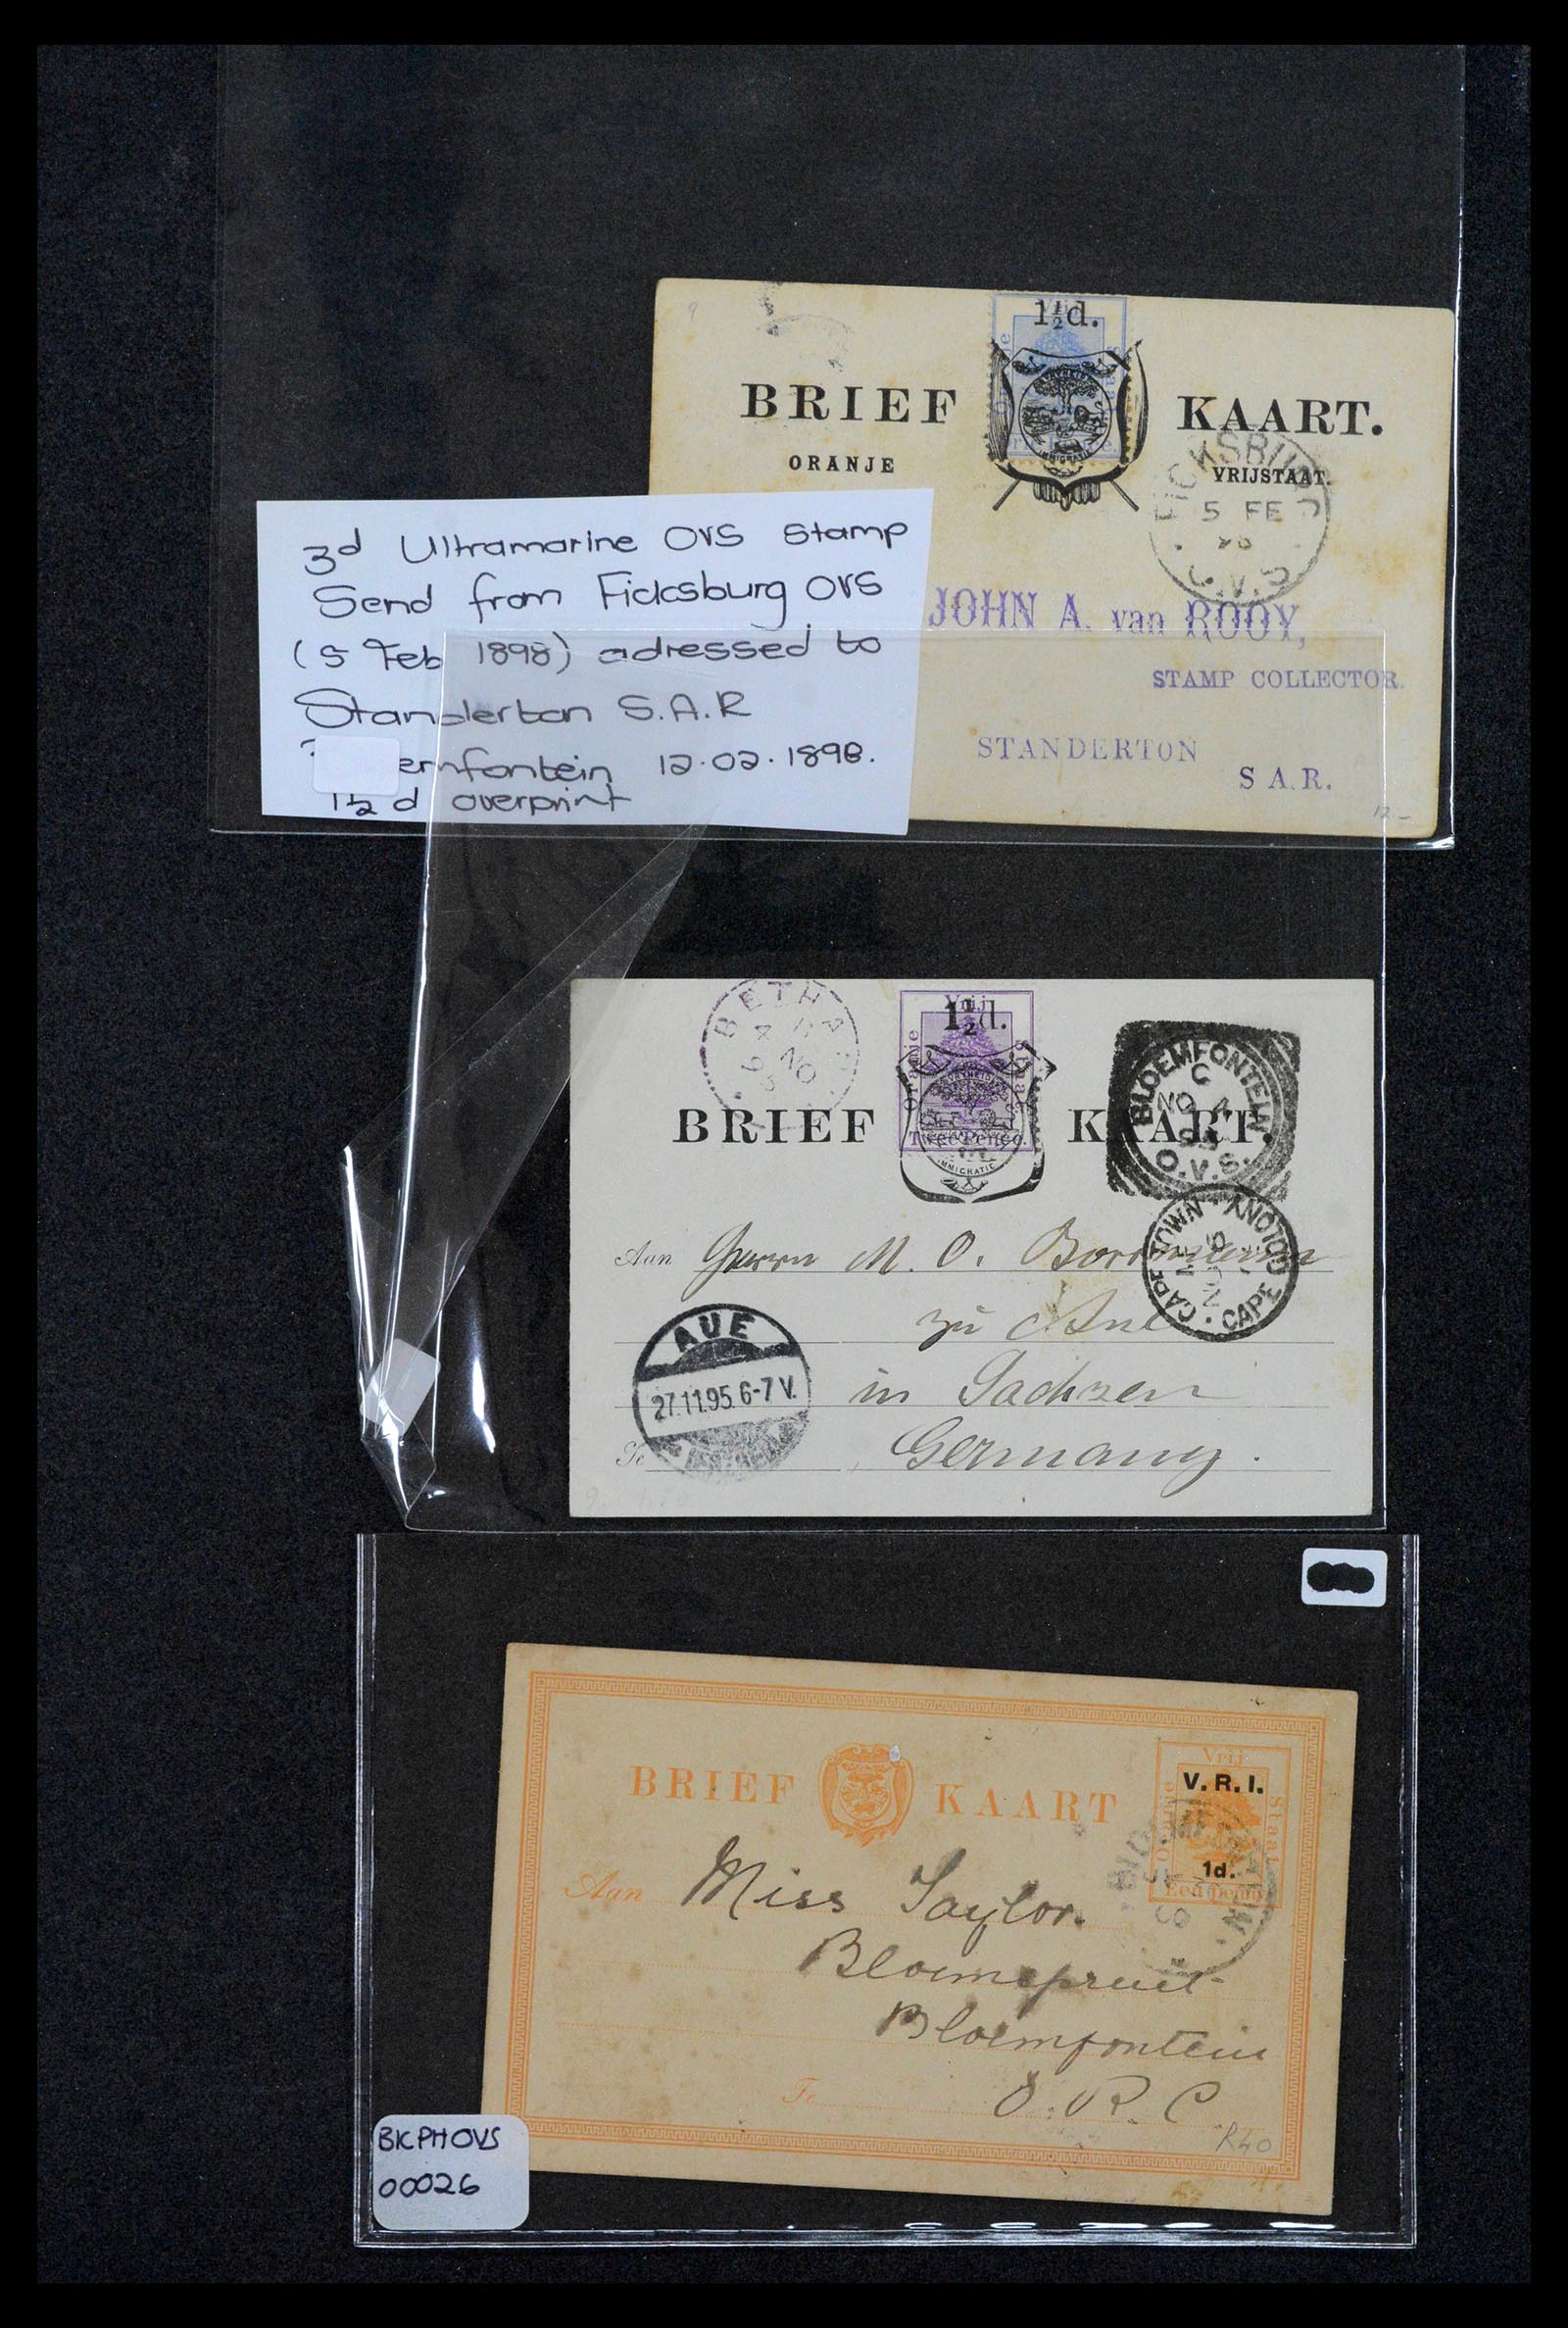 1½d.
BRIEF KAART.
ORANJE VRIJSTAAT.
IMMIGRATIE
FICKSBURG
5 FE
O.V.S
JOHN A. van ROOY,
STAMP COLLECTOR.
STANDERTON
S.A.R.
12-
3d Ultramarine OVS Stamp
Send from Ficksburg OVS
(5 Feb 1898) adressed to
Standerton S.A.R
emfontein 12.02.1898.
1½ d overprint
BETHA
NO
Vrij
1½d.
Oranje Staat
Twee Pence.
IMMIGRATIE
BRIEF KAART.
BLOEMFONTEIN
C
NO 4
95
O.V.S.
CAPE TOWN · CAPE COLONY
NO 6
Aan Herrn M. O. Borrmann
zu Aue
in Sachsen
Te Germany.
AUE
27.11.95.6-7 V.
BRIEF KAART
Vrij
Oranje Staat
V.R.I.
1d.
Een Penny
Aan Miss Taylor.
Bloemspruit
Bloemfontein
Te O.R.C.
R40
BKPHOVS
00026